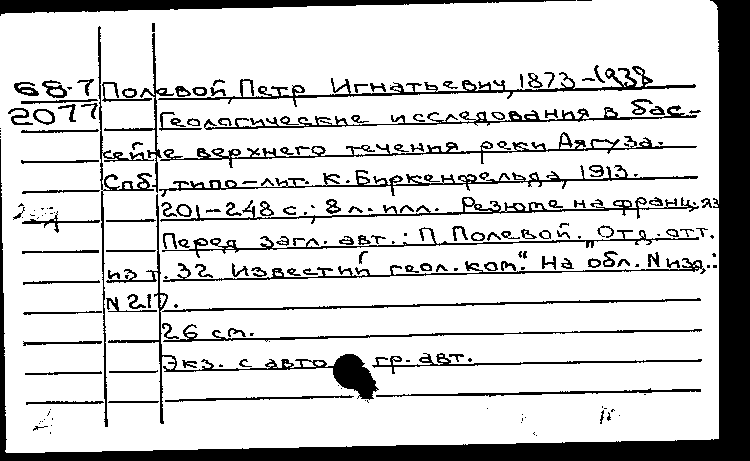 68-7 Полевой, Петр Игнатьевич, 1873-1938
2077 Геологические исследования в бас-
сейне верхнего течения реки Аягуза.
Спб., типо-лит. К. Биркенфельда, 1913.
201-248 с.; 8 л. илл. Резюме на франц. яз
Перед загл. авт.: П. Полевой. "Отд. отт.
из т. 32 Известий геол. ком". На обл. N изд.:
N 217.
26 см.
Экз. с авто гр. авт.